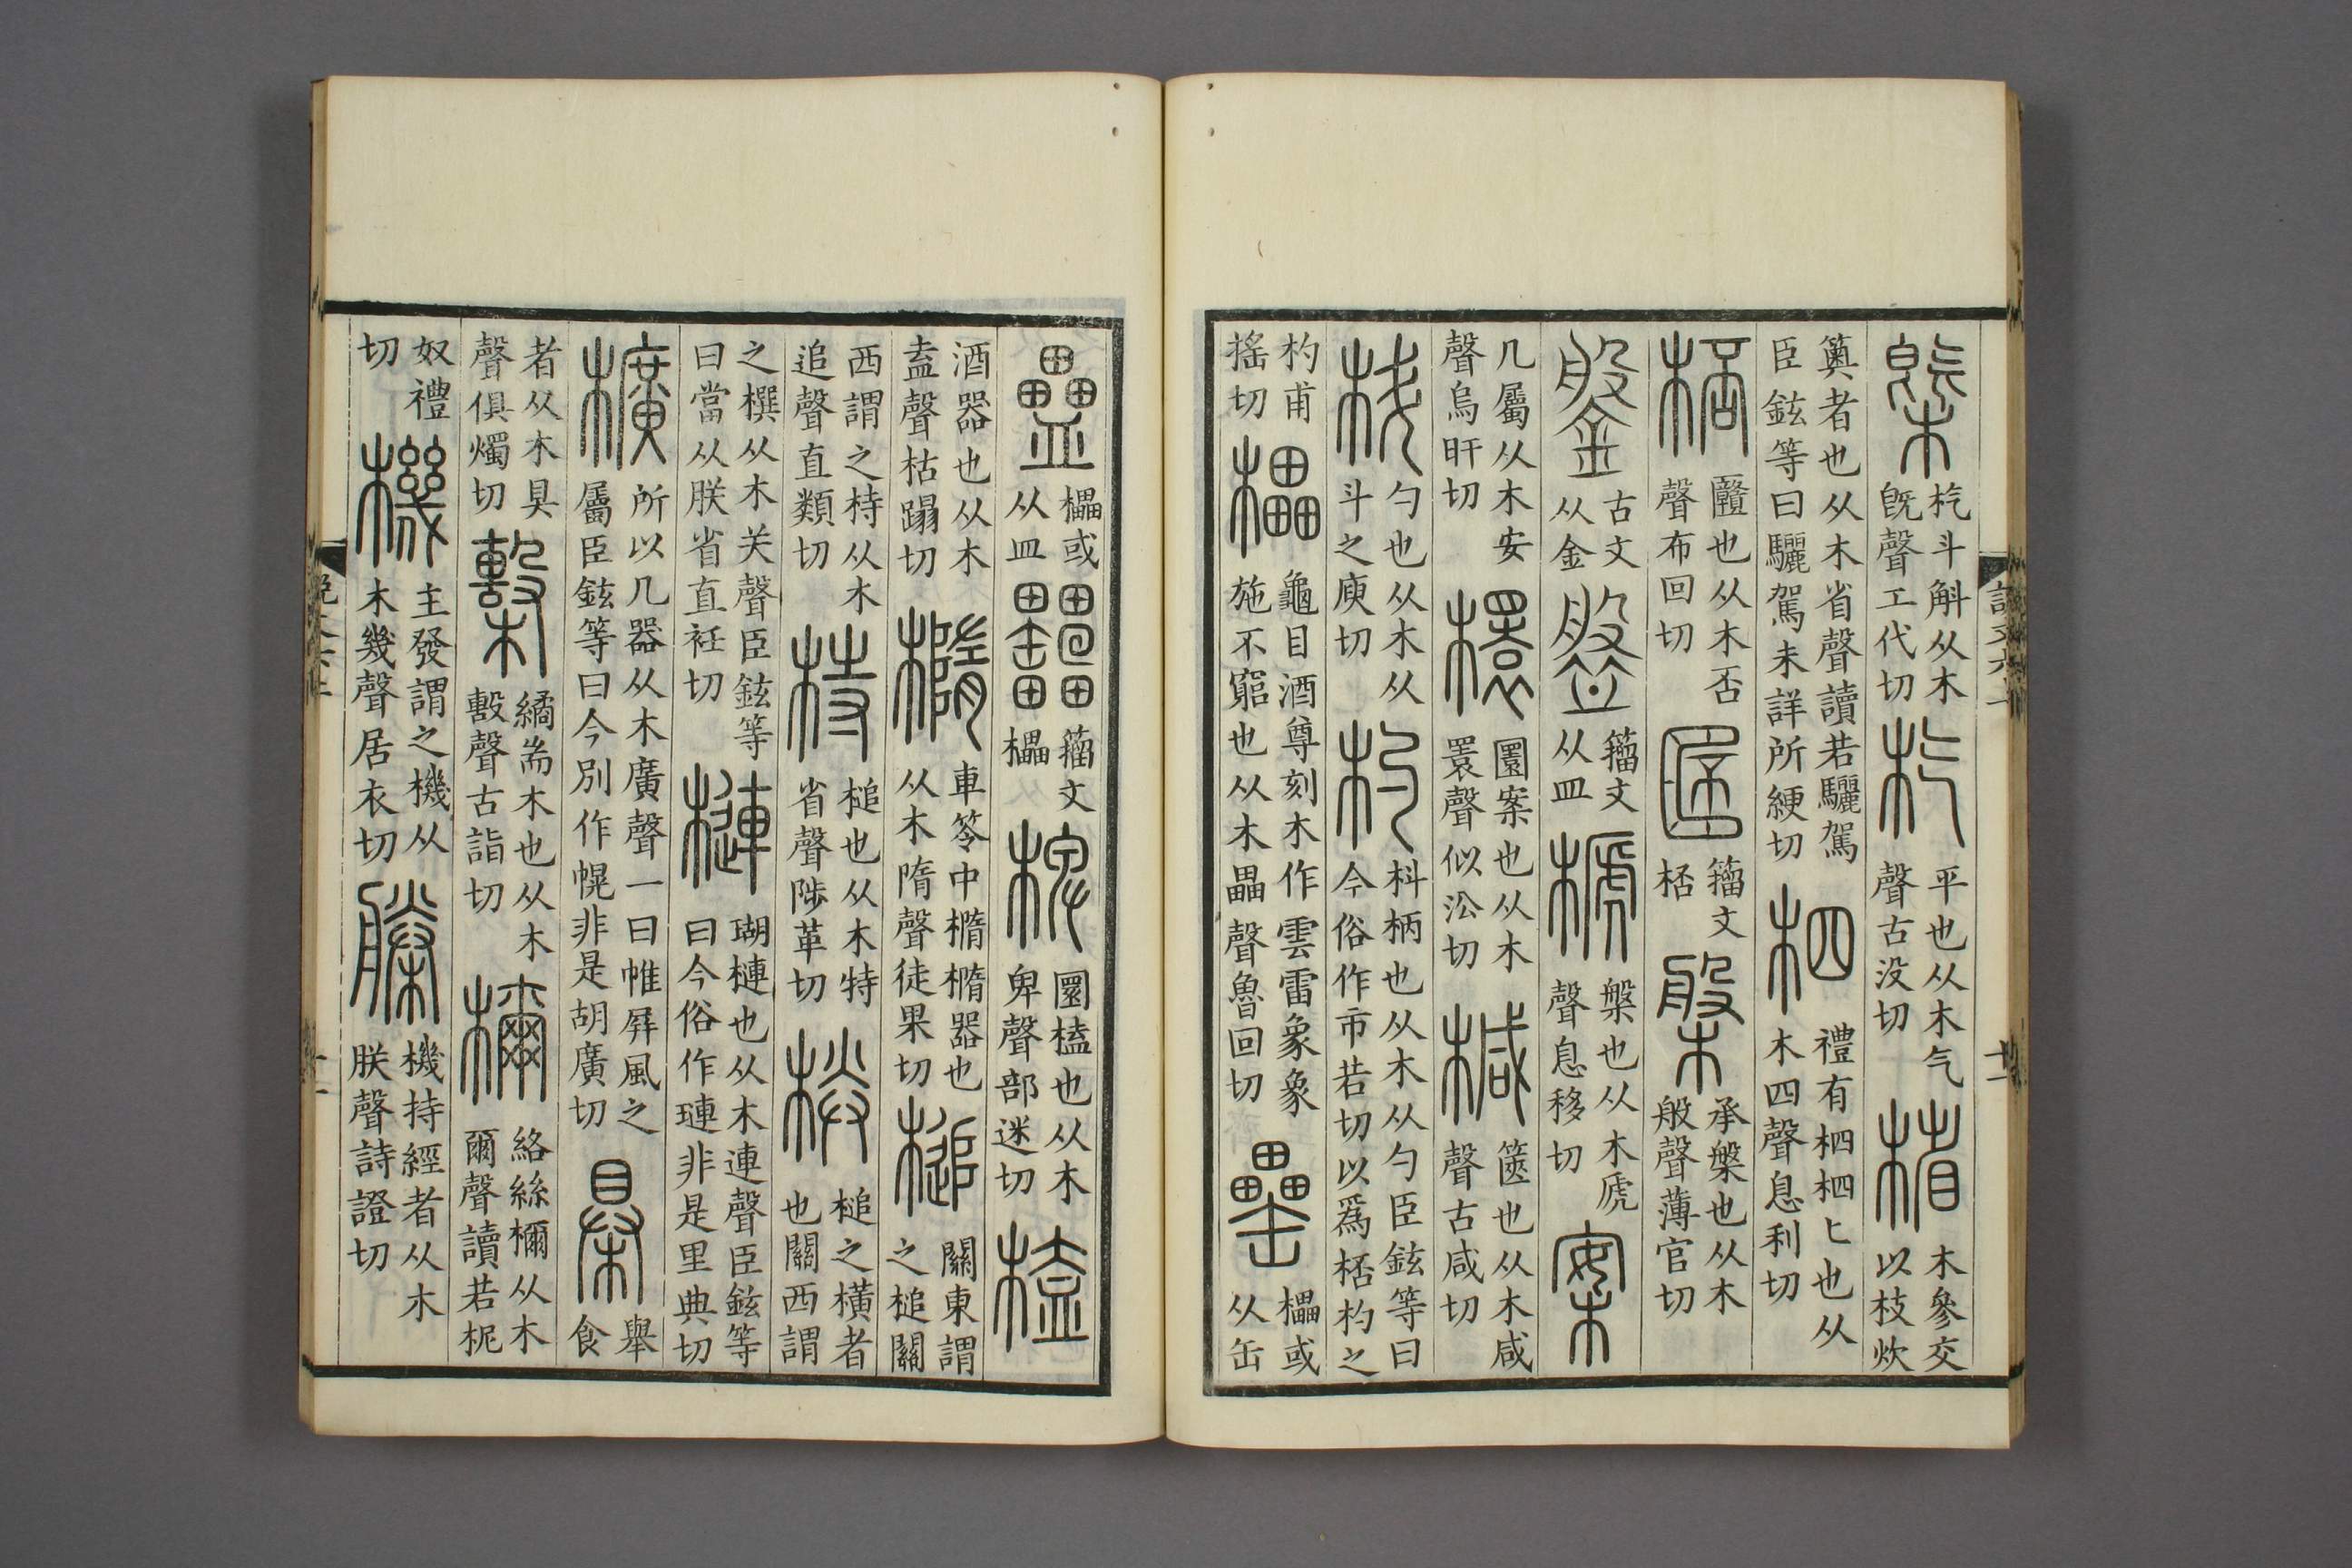 槩杚斗斛从木旣聲工代切杚平也从木气聲古没切楷木參交以枝炊
䉛者也从木省聲讀若驪駕臣鉉等曰驪駕未詳所綆切柶禮有柶柶匕也从木四聲息利切
桮𠤱也从木否聲布回切𠥑籒文桮槃承槃也从木般聲薄官切
鎜古文从金盤籒文从皿榹槃也从木虒聲息移切案
几屬从木安聲烏旰切檈圜案也从木瞏聲似沿切椷篋也从木咸聲古咸切
枓勺也从木从斗之庾切杓枓柄也从木从勺臣鉉等曰今俗作市若切以爲桮杓之
杓甫揺切櫑龜目酒尊刻木作雲雷象象施不窮也从木畾聲魯回切罍櫑或从缶
櫑或从皿籒文櫑椑圜榼也从木卑聲部迷切榼
酒器也从木盍聲枯蹋切橢車笭中橢橢器也从木隋聲徒果切槌關東謂之槌關
西謂之㭙从木追聲直類切㭙槌也从木特省聲陟革切栚槌之橫者也關西謂
之㯢从木关聲臣鉉等曰當从朕省直衽切槤瑚槤也从木連聲臣鉉等曰今俗作璉非是里典切
櫎所以几器从木廣聲一曰帷屛風之屬臣鉉等曰今別作幌非是胡廣切㮂舉食
者从木具聲俱燭切檕繘耑木也从木毄聲古詣切檷絡絲檷从木爾聲讀若柅
奴禮切機主發謂之機从木幾聲居衣切榺機持經者从木朕聲詩證切